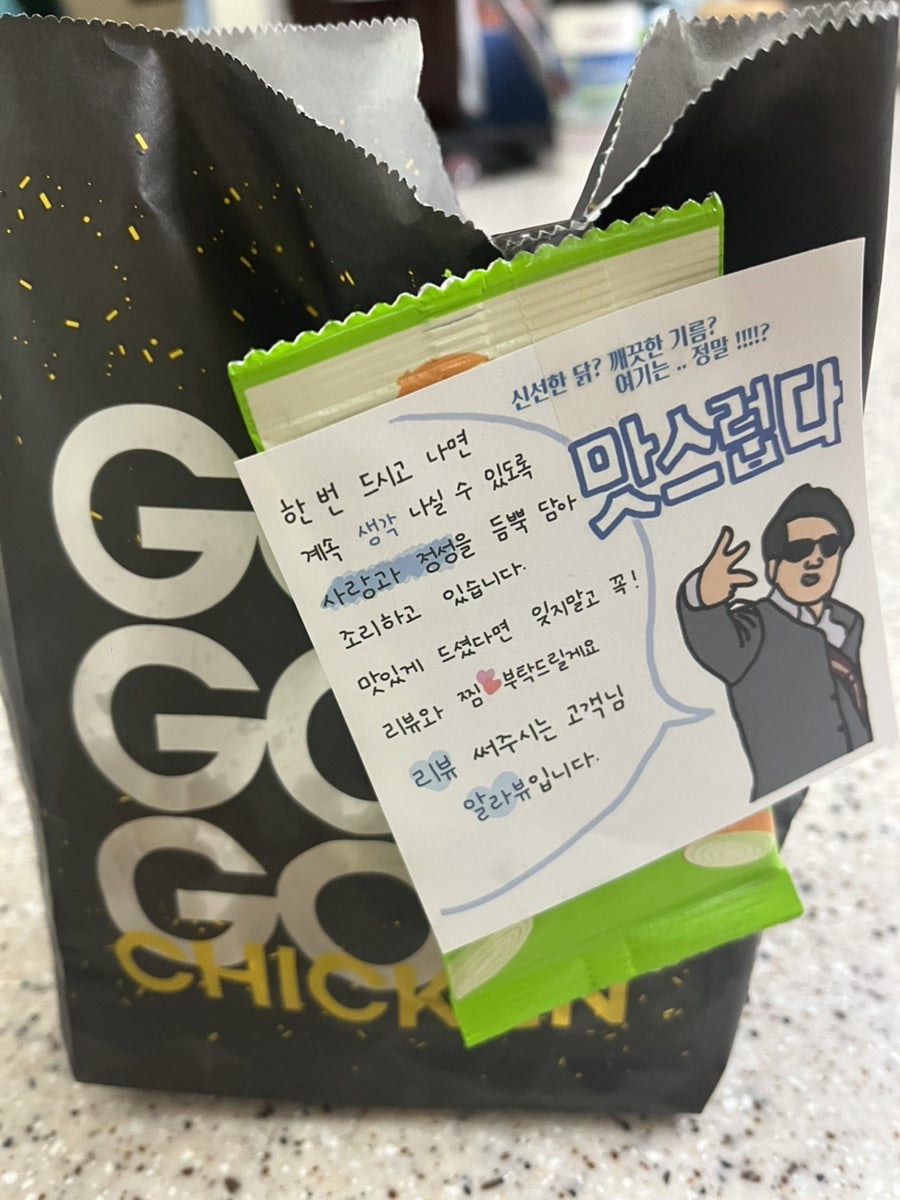 신선한 닭? 깨끗한 기름?
여기는 .. 정말 !!!!?
맛스럽다
한 번 드시고 나면
계속 생각 나실 수 있도록
사랑과 정성을 듬뿍 담아
조리하고 있습니다.
맛있게 드셨다면 잊지말고 꼭!
리뷰와 찜 부탁드릴게요
리뷰 써주시는 고객님
알라뷰입니다.
GO
GO
GO
CHICKEN